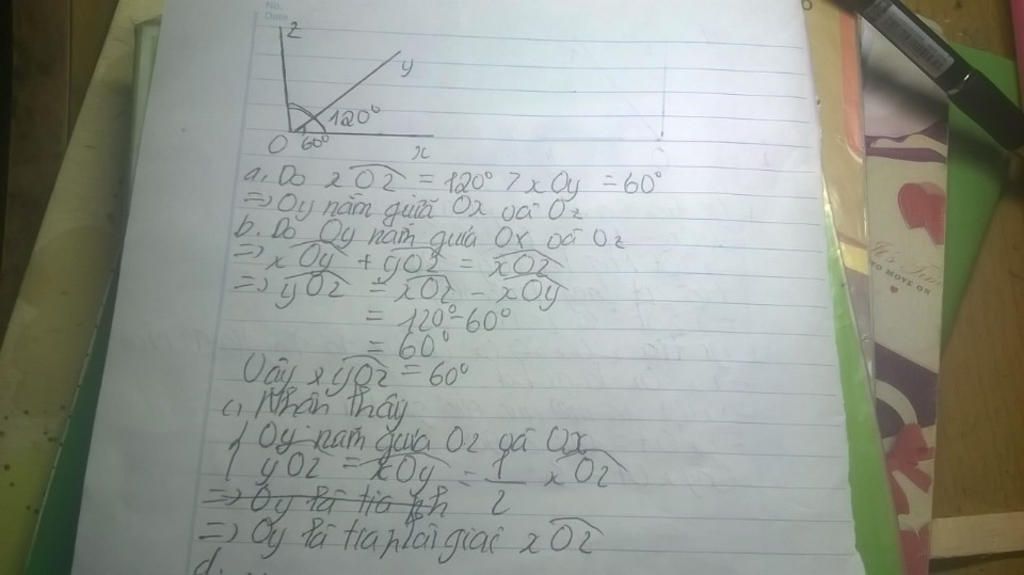 No.
Date
z
y
120°
O 60°
x
a, Do xOz = 120° > xOy = 60°
=> Oy nằm giữa Ox và Oz
b. Do Oy nằm giữa Ox và Oz
=> xOy + yOz = xOz
=> yOz = xOz - xOy
= 120° - 60°
= 60°
Vậy xyOz = 60°
c, Nhận thấy
{ Oy nằm giữa Oz và Ox
yOz = xOy = 1/2 xOz
=> Oy là tia ph
=> Oy là tia phân giác xOz
d.
TO MOVE ON